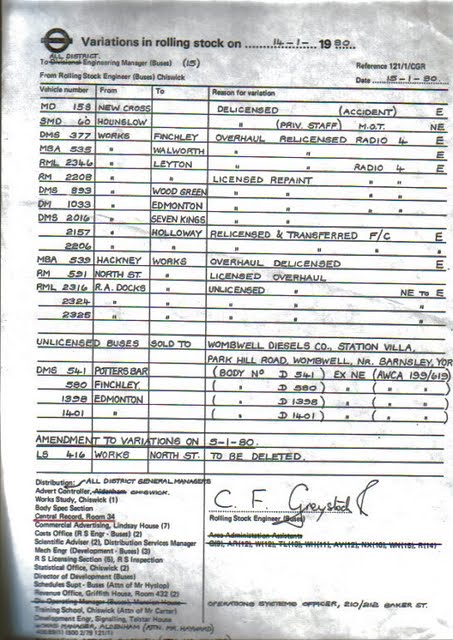 Variations in rolling stock on 14-1- 1980
ALL DISTRICT
To Divisional Engineering Manager (Buses) (15)
Reference 121/1/CGR
From Rolling Stock Engineer (Buses) Chiswick
Date 15-1-80.
Vehicle number From To Reason for variation
MD 158 NEW CROSS DELICENSED (ACCIDENT) E
SMD 60 HOUNSLOW " (PRIV. STAFF) M.O.T. NE
DMS 377 WORKS FINCHLEY OVERHAUL RELICENSED RADIO 4 E
MBA 535 " WALWORTH " " E
RML 2346 " LEYTON " " RADIO 4 E
RM 2208 " " LICENSED REPAINT " "
DMS 893 " WOOD GREEN " " " "
DM 1033 " EDMONTON " " " "
DMS 2016 " SEVEN KINGS " " " "
2157 " HOLLOWAY RELICENSED & TRANSFERRED F/C E
2206 " " " " " "
MBA 539 HACKNEY WORKS OVERHAUL DELICENSED E
RM 591 NORTH ST. " LICENSED OVERHAUL
RML 2316 R.A. DOCKS " UNLICENSED " NE TO E
2324 " " " " "
2325 " " " " "
UNLICENSED BUSES SOLD TO WOMBWELL DIESELS CO., STATION VILLA,
PARK HILL ROAD, WOMBWELL, NR. BARNSLEY, YOR
DMS 541 POTTERS BAR (BODY No D 541) EX NE (AWCA 199/619)
580 FINCHLEY ( " D 580) " " ( " " )
1398 EDMONTON ( " D 1398) " " ( " " )
1401 " ( " D 1401) " " ( " " )
AMENDMENT TO VARIATIONS ON 5-1-80.
LS 416 WORKS NORTH ST. TO BE DELETED.
Distribution: ALL DISTRICT GENERAL MANAGERS
Advert Controller, Aldenham CHISWICK.
Works Study, Chiswick (1)
Body Spec Section
Central Record, Room 34
Commercial Advertising, Lindsay House (7)
Costs Office (R S Engr - Buses) (2)
Scientific Adviser (2) , Distribution Services Manager
Mech Engr (Development - Buses) (3)
R S Licensing Section (5), R S Inspection
Statistical Office, Chiswick (2)
Director of Development (Buses)
Schedules Supt - Buses (Attn of Mr Hyslop)
Revenue Office, Griffith House, Room 432 (2)
Training School, Chiswick (Attn of Mr Carter)
Development Engr, Signalling, Telstar House
C. F. Greystock
Rolling Stock Engineer (Buses)
Area Administration Assistants
OPERATING SYSTEMS OFFICER, 210/212 BAKER ST.